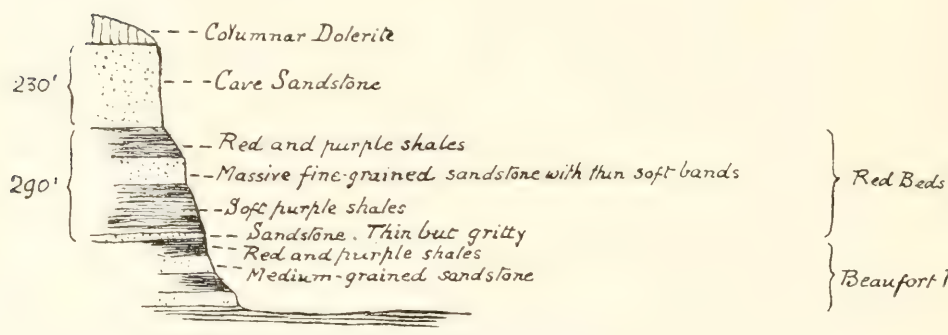 Columnar Dolerite
230' Cave Sandstone
Red and purple shales
290' Massive fine-grained sandstone with thin soft bands
Red Beds
Soft purple shales
Sandstone. Thin but gritty
Red and purple shales
Medium-grained sandstone
Beaufort